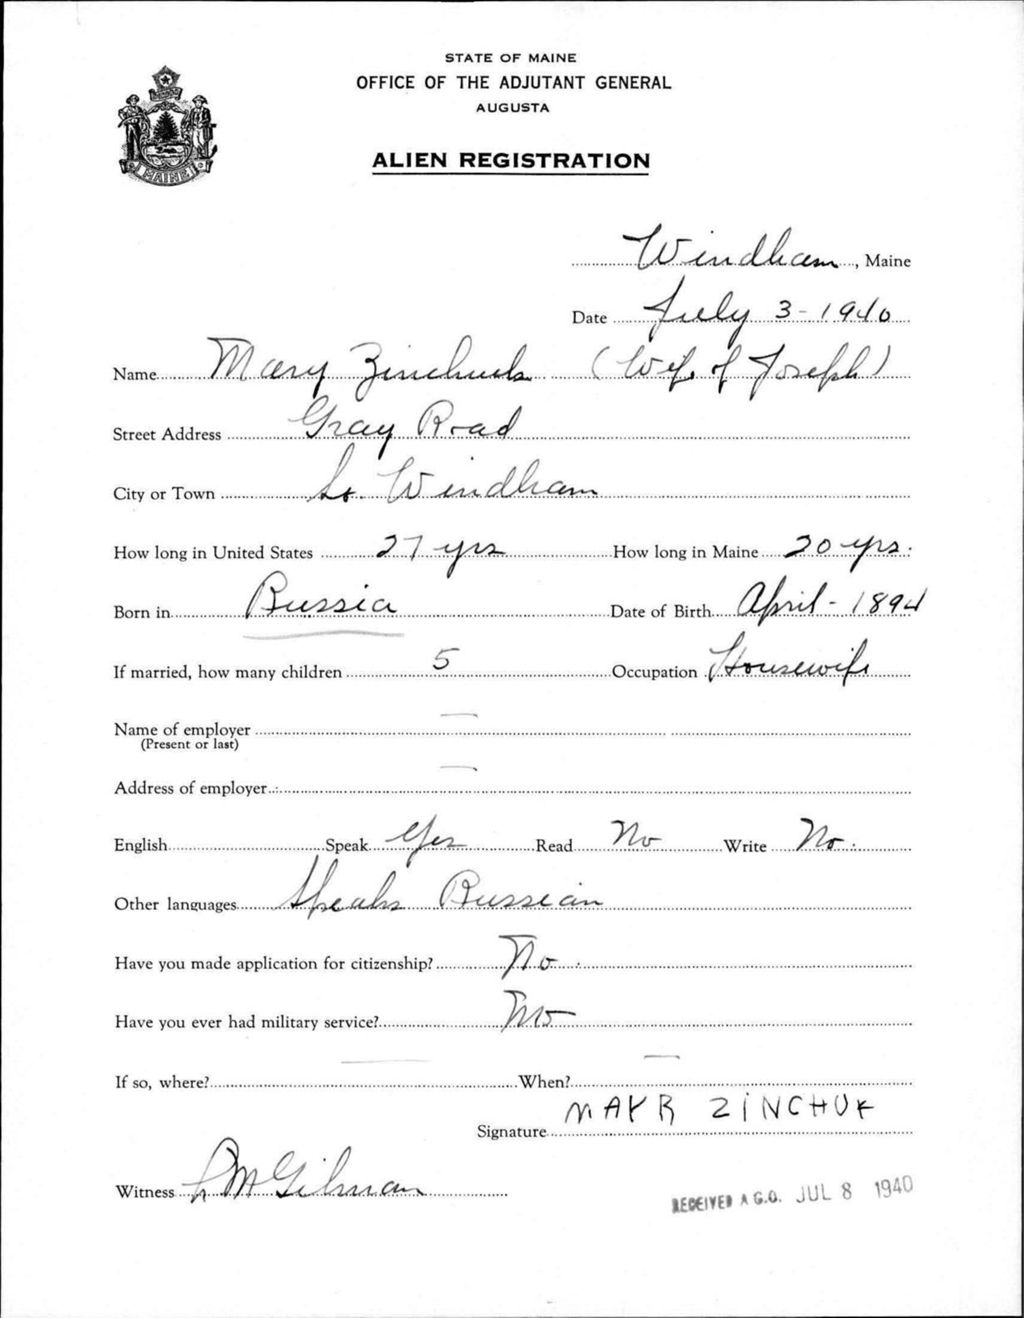 STATE OF MAINE
OFFICE OF THE ADJUTANT GENERAL
AUGUSTA
ALIEN REGISTRATION
MAINE
Windham, Maine
Date July 3-1940
Name Mary Zinchuk (Wife of Joseph)
Street Address Gray Road
City or Town So. Windham
How long in United States 27 yrs How long in Maine 20 yrs.
Born in Russia Date of Birth April - 1894
If married, how many children 5 Occupation Housewife
Name of employer —
(Present or last)
Address of employer —
English Speak Yes Read No Write No.
Other languages Speaks Russian
Have you made application for citizenship? No.
Have you ever had military service? No
If so, where? — When? —
Signature MAYR ZINCHUK
Witness L M Gilman
RECEIVED A.G.O. JUL 8 1940